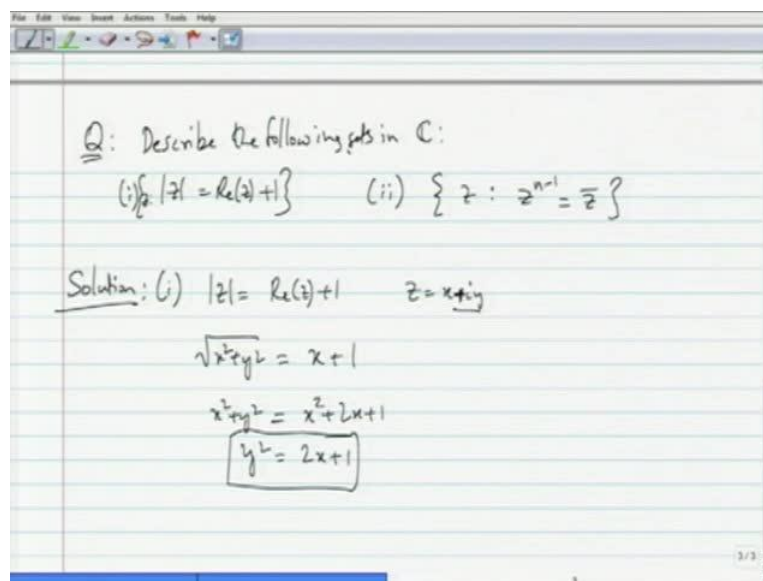 File Edit View Insert Actions Tools Help
Q: Describe the following sets in ℂ:
(i) {z: |z| = Re(z)+1} (ii) { z : z^{n-1} = z̅ }
Solution: (i) |z| = Re(z)+1 z = x+iy
√x²+y² = x+1
x²+y² = x²+2x+1
y² = 2x+1
3/3